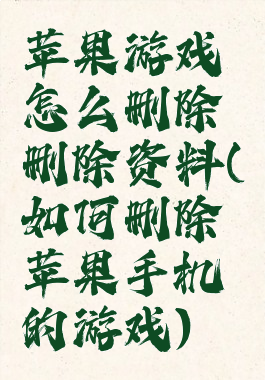 苹果游戏
怎么删除
删除资料(
如何删除
苹果手机
的游戏)